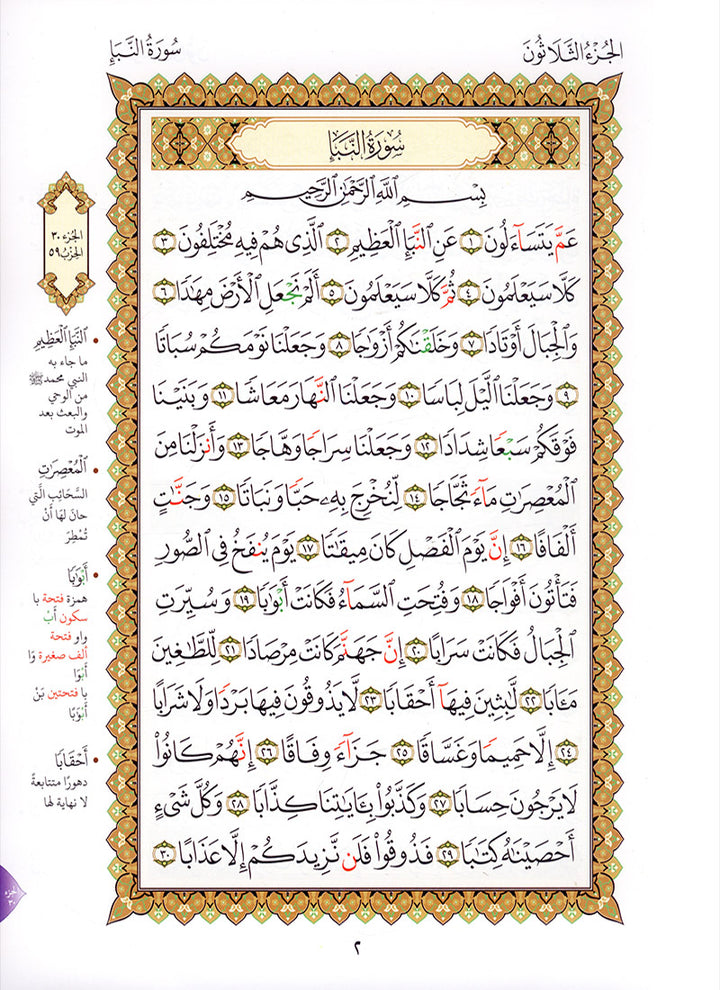 الجُزْءُ الثَّلَاثُونَ
سُورَةُ النَّبَإِ
سُورَةُ النَّبَإِ
بِسْمِ اللَّهِ الرَّحْمَٰنِ الرَّحِيمِ
عَمَّ يَتَسَآءَلُونَ ١ عَنِ النَّبَإِ الْعَظِيمِ ٢ الَّذِى هُمْ فِيهِ مُخْتَلِفُونَ ٣
كَلَّا سَيَعْلَمُونَ ٤ ثُمَّ كَلَّا سَيَعْلَمُونَ ٥ أَلَمْ نَجْعَلِ الْأَرْضَ مِهَٰدًا ٦
وَالْجِبَالَ أَوْتَادًا ٧ وَخَلَقْنَٰكُمْ أَزْوَٰجًا ٨ وَجَعَلْنَا نَوْمَكُمْ سُبَاتًا
٩ وَجَعَلْنَا الَّيْلَ لِبَاسًا ١٠ وَجَعَلْنَا النَّهَارَ مَعَاشًا ١١ وَبَنَيْنَا
فَوْقَكُمْ سَبْعًا شِدَادًا ١٢ وَجَعَلْنَا سِرَاجًا وَهَّاجًا ١٣ وَأَنزَلْنَا مِنَ
الْمُعْصِرَٰتِ مَآءً ثَجَّاجًا ١٤ لِّنُخْرِجَ بِهِۦ حَبًّا وَنَبَاتًا ١٥ وَجَنَّٰتٍ
أَلْفَافًا ١٦ إِنَّ يَوْمَ الْفَصْلِ كَانَ مِيقَٰتًا ١٧ يَوْمَ يُنفَخُ فِى الصُّورِ
فَتَأْتُونَ أَفْوَاجًا ١٨ وَفُتِحَتِ السَّمَآءُ فَكَانَتْ أَبْوَٰبًا ١٩ وَسُيِّرَتِ
الْجِبَالُ فَكَانَتْ سَرَابًا ٢٠ إِنَّ جَهَنَّمَ كَانَتْ مِرْصَادًا ٢١ لِّلطَّٰغِينَ
مَـَٔابًا ٢٢ لَّٰبِثِينَ فِيهَآ أَحْقَابًا ٢٣ لَّا يَذُوقُونَ فِيهَا بَرْدًا وَلَا شَرَابًا
٢٤ إِلَّا حَمِيمًا وَغَسَّاقًا ٢٥ جَزَآءً وِفَاقًا ٢٦ إِنَّهُمْ كَانُوا۟
لَا يَرْجُونَ حِسَابًا ٢٧ وَكَذَّبُوا۟ بِـَٔايَٰتِنَا كِذَّابًا ٢٨ وَكُلَّ شَىْءٍ
أَحْصَيْنَٰهُ كِتَٰبًا ٢٩ فَذُوقُوا۟ فَلَن نَّزِيدَكُمْ إِلَّا عَذَابًا ٣٠
الجزء ٣٠
الحزب ٥٩
النَّبَإِ الْعَظِيمِ
ما جاء به
النبي محمد ﷺ
من الوحي
والبعث بعد
الموت
الْمُعْصِرَٰتِ
السَّحَائِب الَّتِي
حَانَ لهَا أَنْ
تُمْطِرَ
أَبْوَٰبًا
همزة فتحة با
سكون أَبْ
واو فتحة
ألف صغيرة وَا
أَبْوَا
با فتحتين بَنْ
أَبْوَٰبًا
أَحْقَابًا
دهورًا متتابعةً
لا نهاية لها
الجزء
٣٠
٢